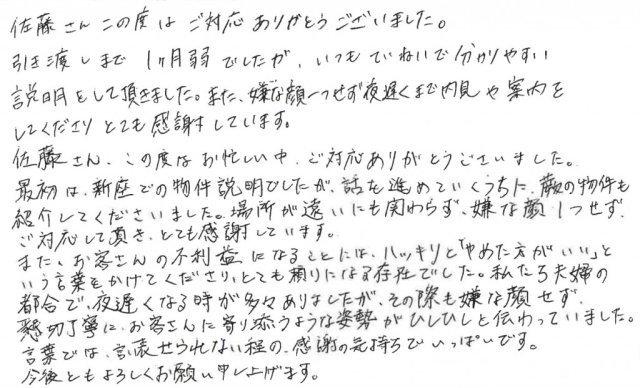 佐藤さんこの度はご対応ありがとうございました。
引き渡しまで1ヶ月弱でしたが、いつもていねいで分かりやすい
説明をして頂きました。また、嫌な顔一つせず夜遅くまで内見や案内を
してくださりとても感謝しています。
佐藤さん、この度はお忙しい中、ご対応ありがとうございました。
最初は、新座での物件説明でしたが、話を進めていくうちに、蕨の物件も
紹介してくださいました。場所が遠いにも関わらず、嫌な顔1つせず、
ご対応して頂き、とても感謝しています。
また、お客さんの不利益になることには、ハッキリと「やめた方がいい」と
いう言葉をかけてくださり、とても頼りになる存在でした。私たち夫婦の
都合で、夜遅くなる時が多々ありましたが、その際も嫌な顔せず、
懇切丁寧に、お客さんに寄り添うような姿勢がひしひしと伝わっていました。
言葉では、言い表せられない程の、感謝の気持ちでいっぱいです。
今後ともよろしくお願い申し上げます。